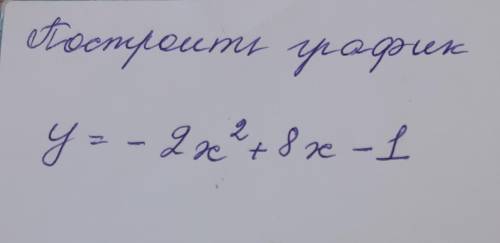 Построить график
y = - 2x² + 8x - 1